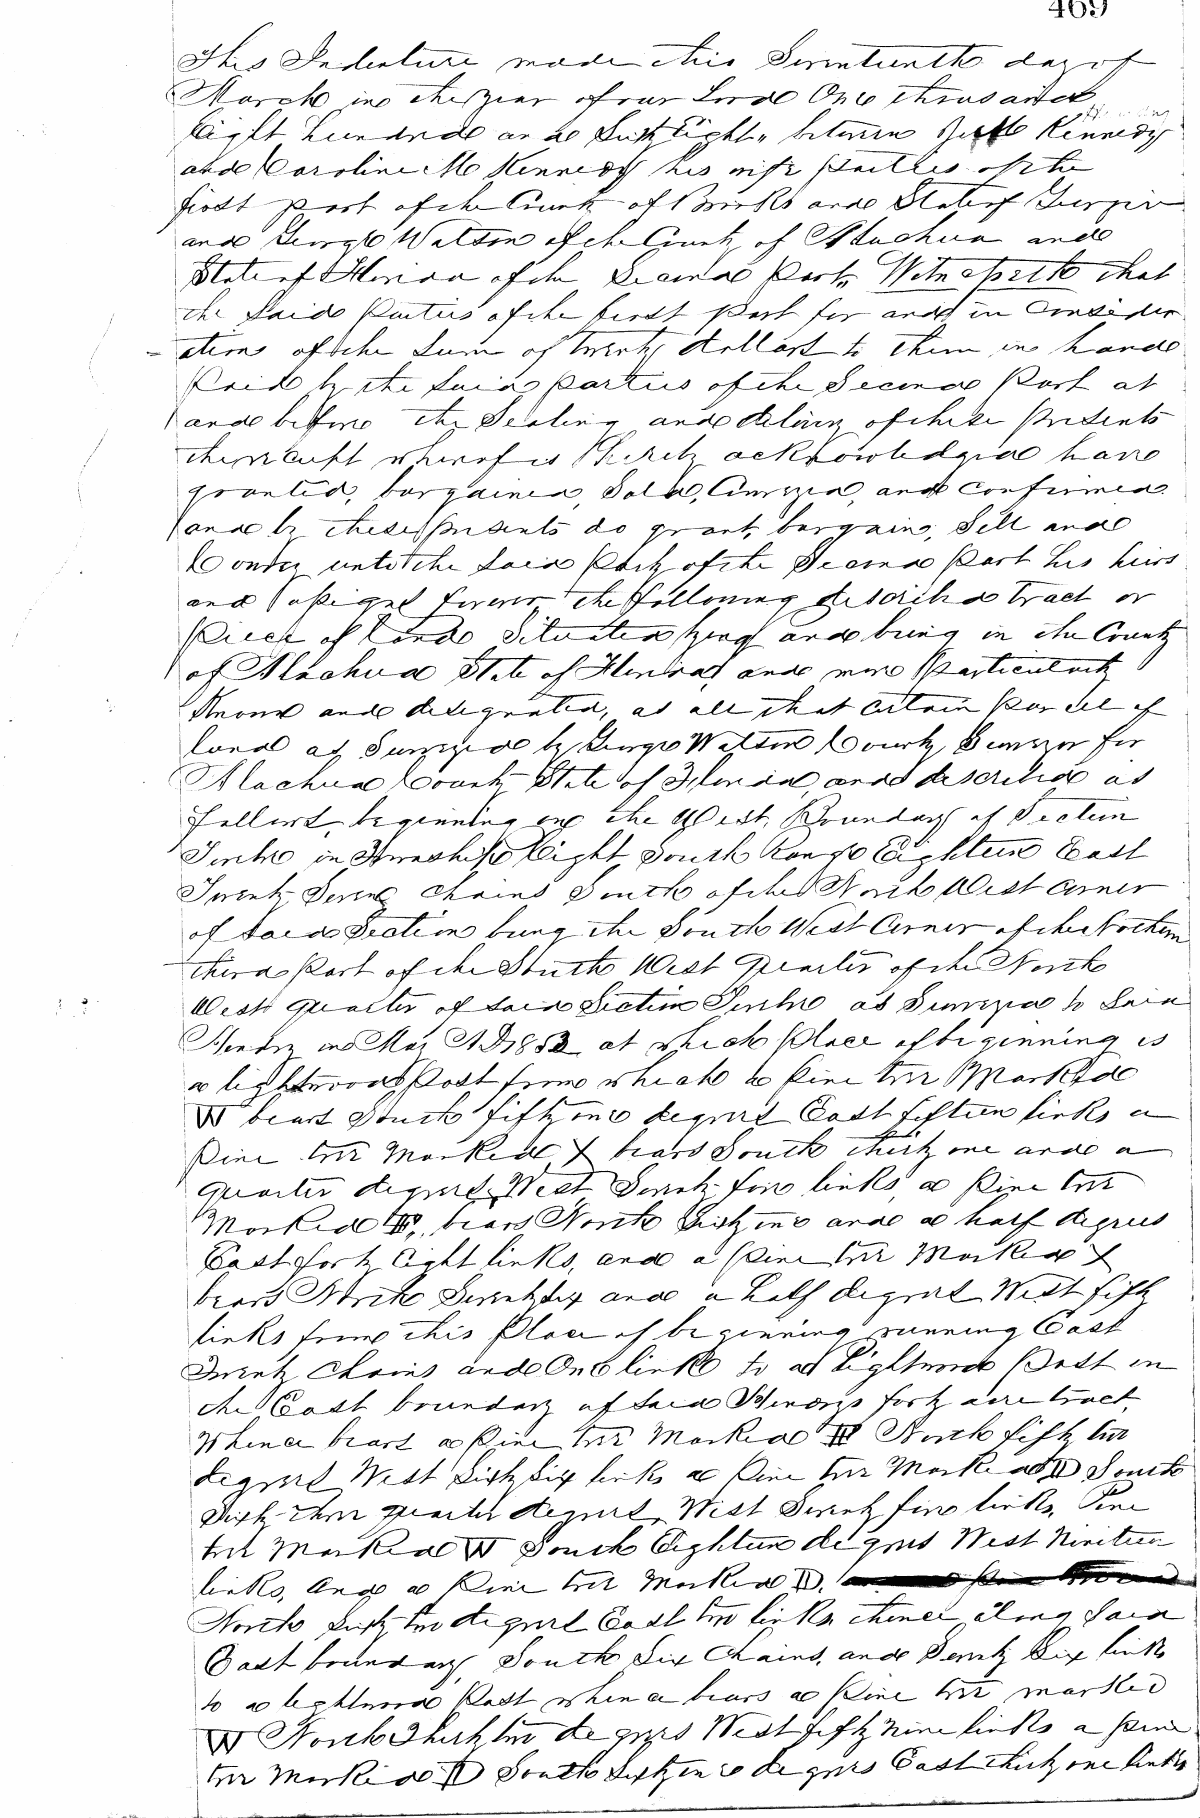 469
This Indenture made this Seventeenth day of
March in the year of our Lord One thousand
Eight hundred and Sixty Eight, between Kennedy
and Caroline M Kennedy his wife parties of the
first part of the County of Brooks and State of Georgia
and George Watson of the County of Alachua and
State of Florida of the Second Part, Witnesseth that
the Said Parties of the first part for and in consider
-ation of the Sum of twenty dollars to them in hand
Paid by the Said parties of the Second Part at
and before the Sealing and delivery of these presents
the receipt whereof is hereby acknowledged have
granted, bargained, Sold, Conveyed, and confirmed
and by these presents do grant, bargain, Sell and
Convey unto the Said Party of the Second Part his heirs
and assigns forever the following described tract or
Piece of Land Situated lying and being in the County
of Alachua State of Florida, and more Particularly
Known and designated, as all that certain parcel of
land as Surveyed by George Watson County Surveyor for
Alachua County State of Florida, and described as
follows, beginning on the West Boundary of Section
Twelve in Township Eight South Range Eighteen East
Twenty Seven Chains South of the North West corner
of Said Section being the South West Corner of the Northern
third Part of the South West Quarter of the North
West quarter of Said Section Twelve as Surveyed to Said
Hendry in May AD 1853 at which Place of beginning is
a lightwood Post from which a Pine tree Marked
W bears South fifty one degrees East fifteen links a
Pine tree Marked X bears South thirty one and a
quarter degrees West Seventy five links, a Pine tree
Marked bears North Sixty one and a half degrees
East forty Eight links, and a Pine tree Marked X
bears North Seventy Six and a half degrees West fifty
links from this Place of beginning running East
Twenty Chains and One link to a Lightwood Post in
the East boundary of Said Hendrys forty acre tract,
Whence bears a Pine tree Marked North fifty two
degrees West Sixty Six links a Pine tree Marked South
Sixty three quarter degrees West Seventy five links, Pine
tree Marked W South Eighteen degrees West Nineteen
links, And a Pine tree Marked
North Sixty two degrees East two links, thence along Said
East boundary, South Six Chains, and Seventy Six links
to a lightwood Post whence bears a Pine tree marked
W North Thirty two degrees West fifty nine links a pine
tree Marked South Sixty one degrees East thirty one links